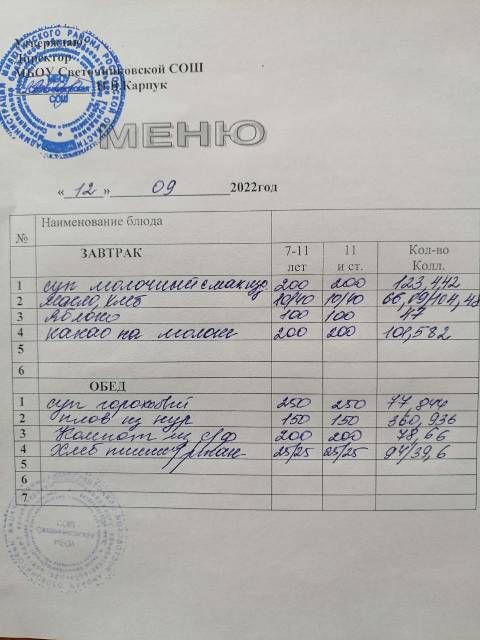 Утверждаю
Директор
МБОУ Светочниковской СОШ
Н.В.Карпук
МЕНЮ
« 12 » 09 2022год
№ Наименование блюда
ЗАВТРАК 7-11 лет 11 и ст. Кол-во Колл.
1 суп молочный с мак изд 200 200 123,442
2 Масло, хлеб 10/40 10/40 66,09/104,48
3 Яблоко 100 100 47
4 какао на молоке 200 200
5
6
ОБЕД
1 суп гороховый 250 250 77,844
2 плов из кур 150 150 360,936
3 Компот из с/ф 200 200 78,66
4 Хлеб пшенич/ржан 25/25 25/25 94/39,6
5
6
7